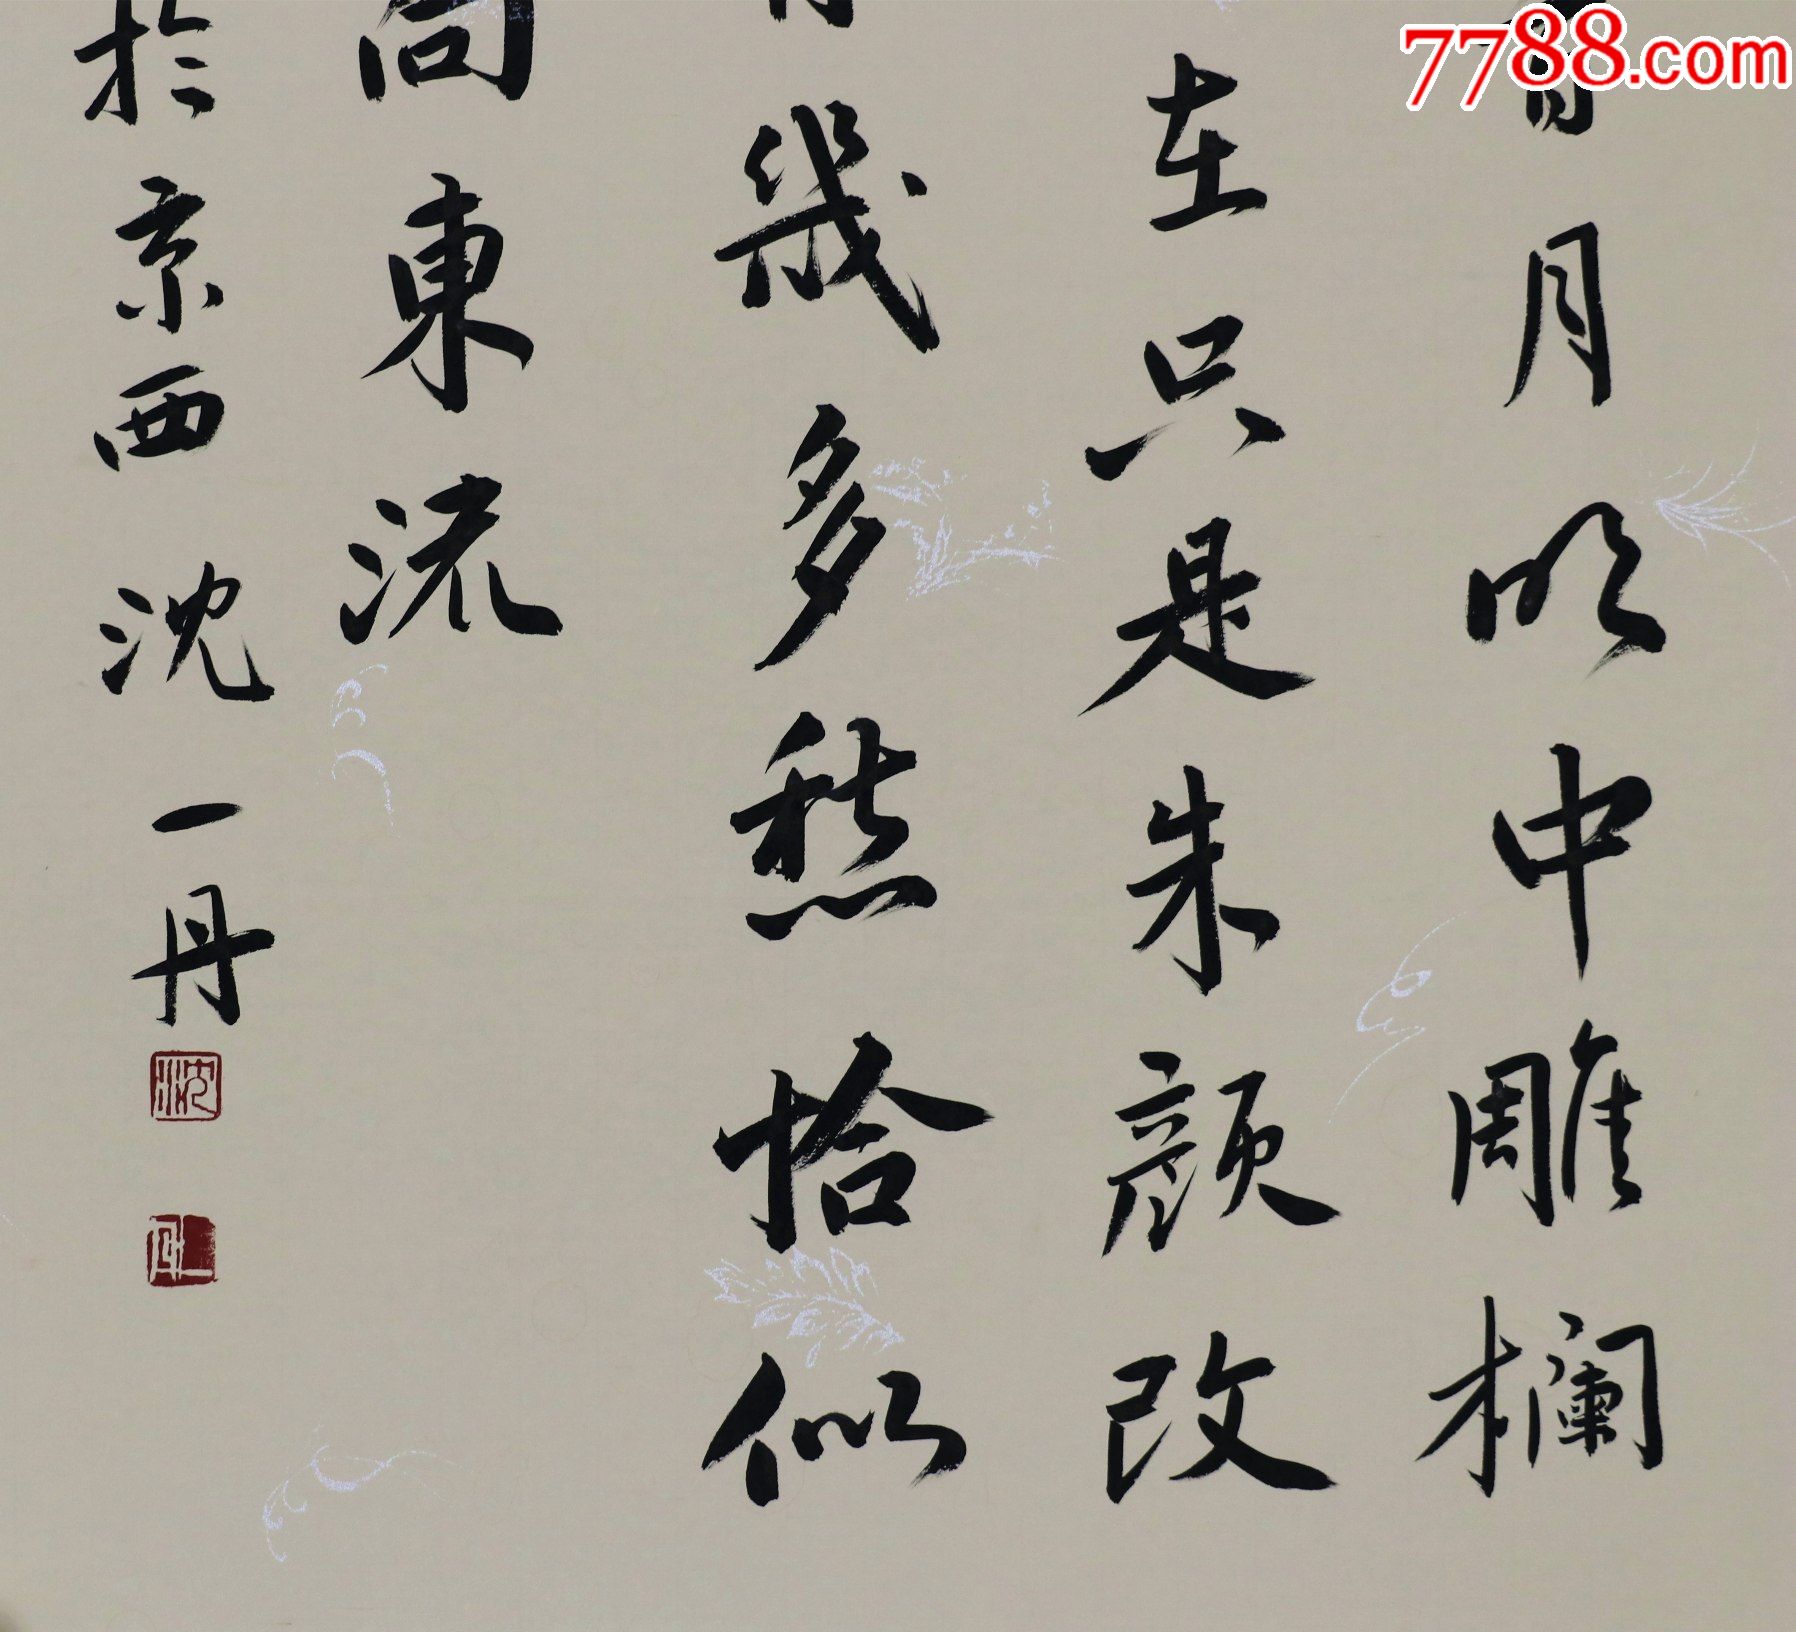 月明中雕欄
在只是朱颜改
幾多愁恰似
向東流
於京西沈一丹
沈
一丹
7788.com